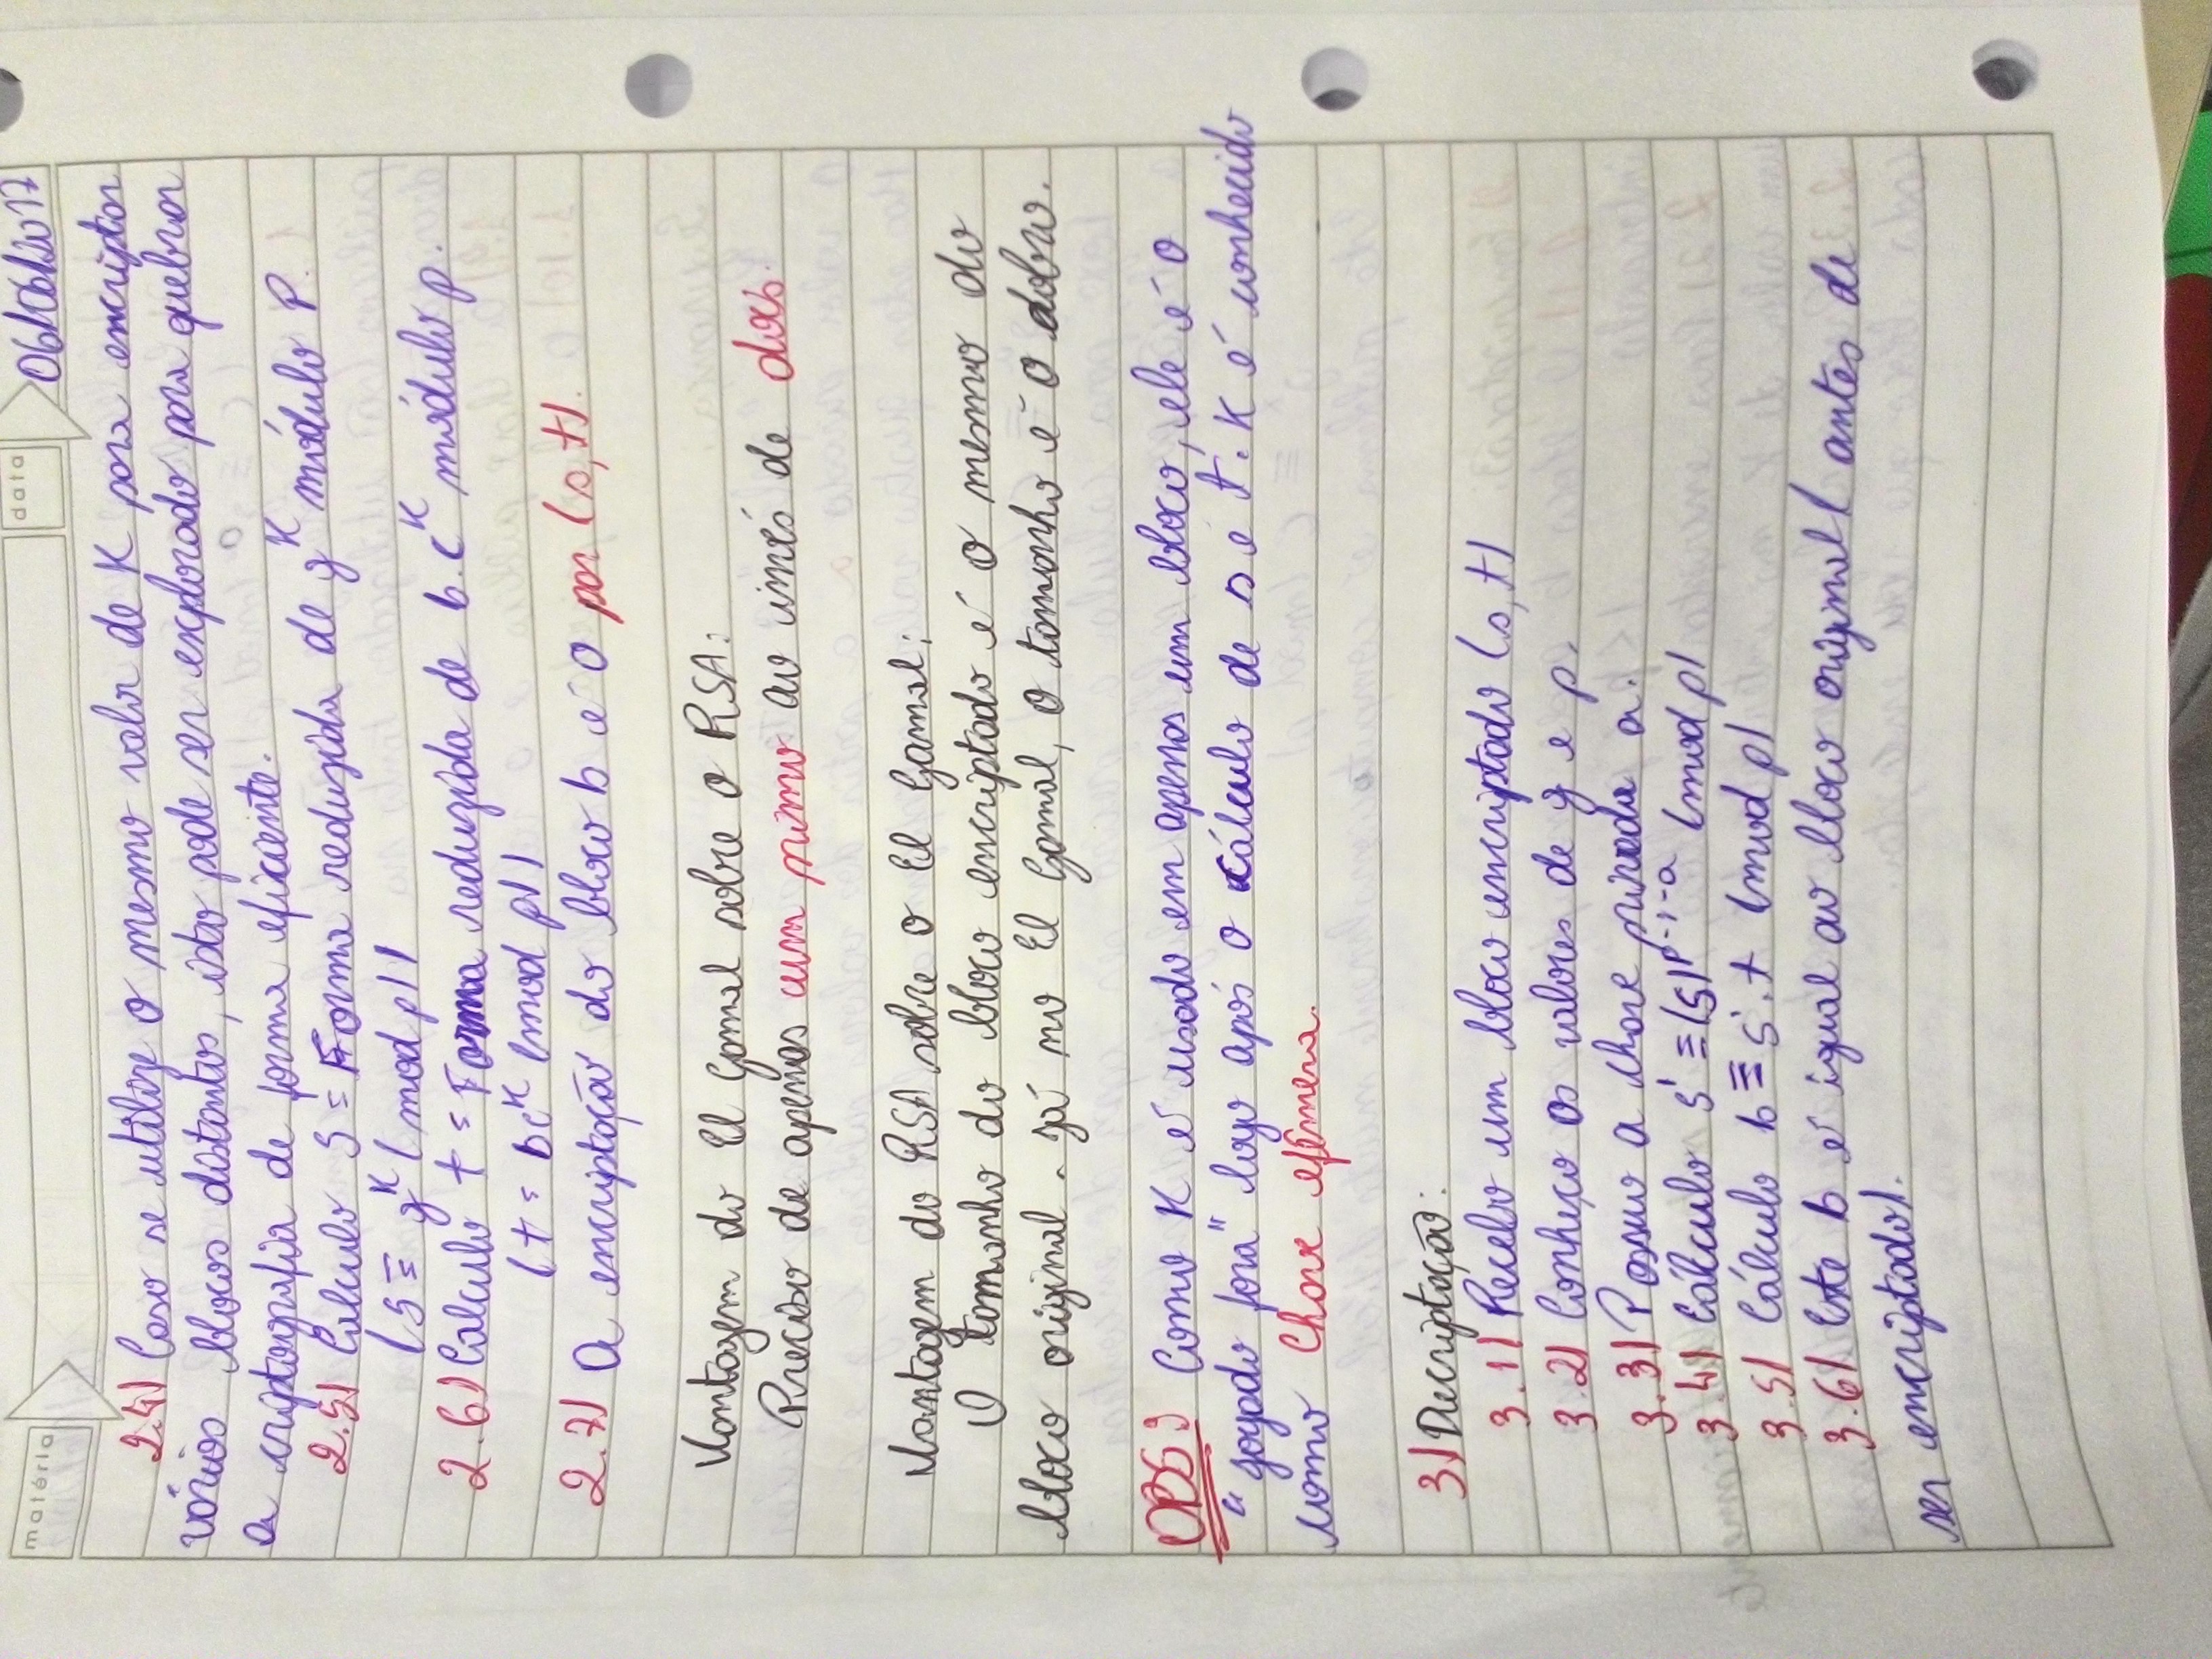 matéria
data
06/06/2017
2.4) Caso se utilize o mesmo valor de K para encriptar
vários blocos distontos, isto pode ser explorado para quebrar
a criptografia de forma eficiente.
2.5) Calculo S = Forma reduzida de g^K módulo P.
(S ≡ g^K (mod p))
2.6) Calculo t = Forma reduzida de b.c^K módulo p.
(t = bc^K (mod p))
2.7) A encriptação do bloco b é o par (s,t).
Vantagem do El Gamal sobre o RSA:
Preciso de apenas um primo ao invés de dois.
Vantagem do RSA sobre o El Gamal:
O tamanho do bloco encriptado é o mesmo do
bloco original. Já no El Gamal, o tamanho é o dobro.
OBS: Como K é usado em apenas um bloco, ele é o
"jogado fora" logo após o cálculo de s e t. K é conhecido
como Chave efêmera.
3) Decriptação:
3.1) Recebo um bloco encriptado (s,t)
3.2) Conheço os valores de g e p.
3.3) Possuo a chave privada a.
3.4) Cálculo S' ≡ (S)^p-1-a (mod p)
3.5) Cálculo b ≡ S'.t (mod p)
3.6) Este b é igual ao bloco original ( antes de
ser encriptado).